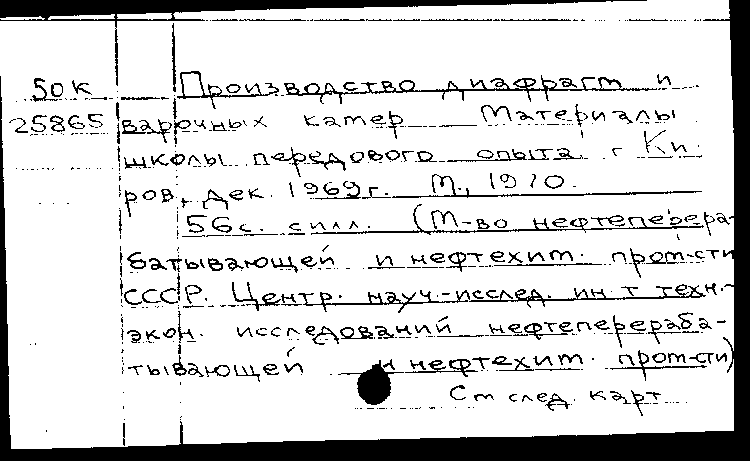 50к Производство диафрагм и
25865 варочных камер Материалы
школы передового опыта г Ки-
ров, дек. 1969г. М., 1970.
56с. силл. (М-во нефтеперера-
батывающей и нефтехим. пром-сти
СССР. Центр. науч.-исслед. ин т техн.-
экон. исследований нефтеперераба-
тывающей и нефтехим. пром-сти)
См след. карт